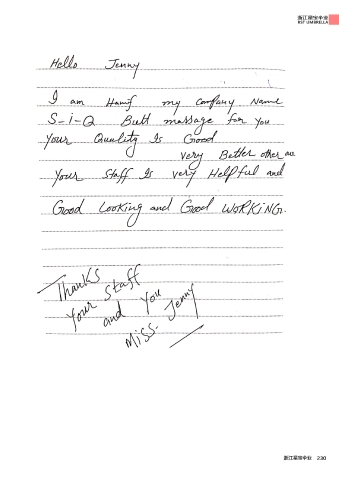 浙江荣世伞业
RST UMBRELLA
Hello Jenny
I am Hanif my company Name
S-i-Q Butt massage for you
Your Quality Is Good
very Better other are
Your Staff Is very Helpful and
Good Looking and Good WORKING.
Thanks
Your Staff
and You
Miss. Jenny
浙江荣世伞业 230